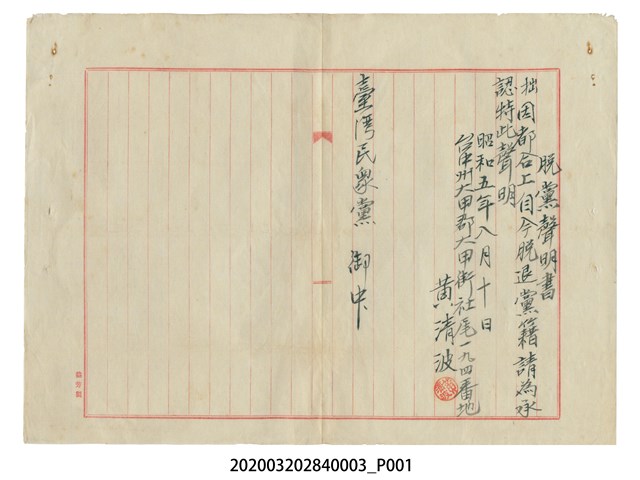 脫黨聲明書
拙因都合上自今脫退黨籍請為承
認特此聲明
昭和五年八月十日
台中州大甲郡大甲街社尾一九四番地
黃清波
臺灣民衆黨 御中
202003202840003_P001